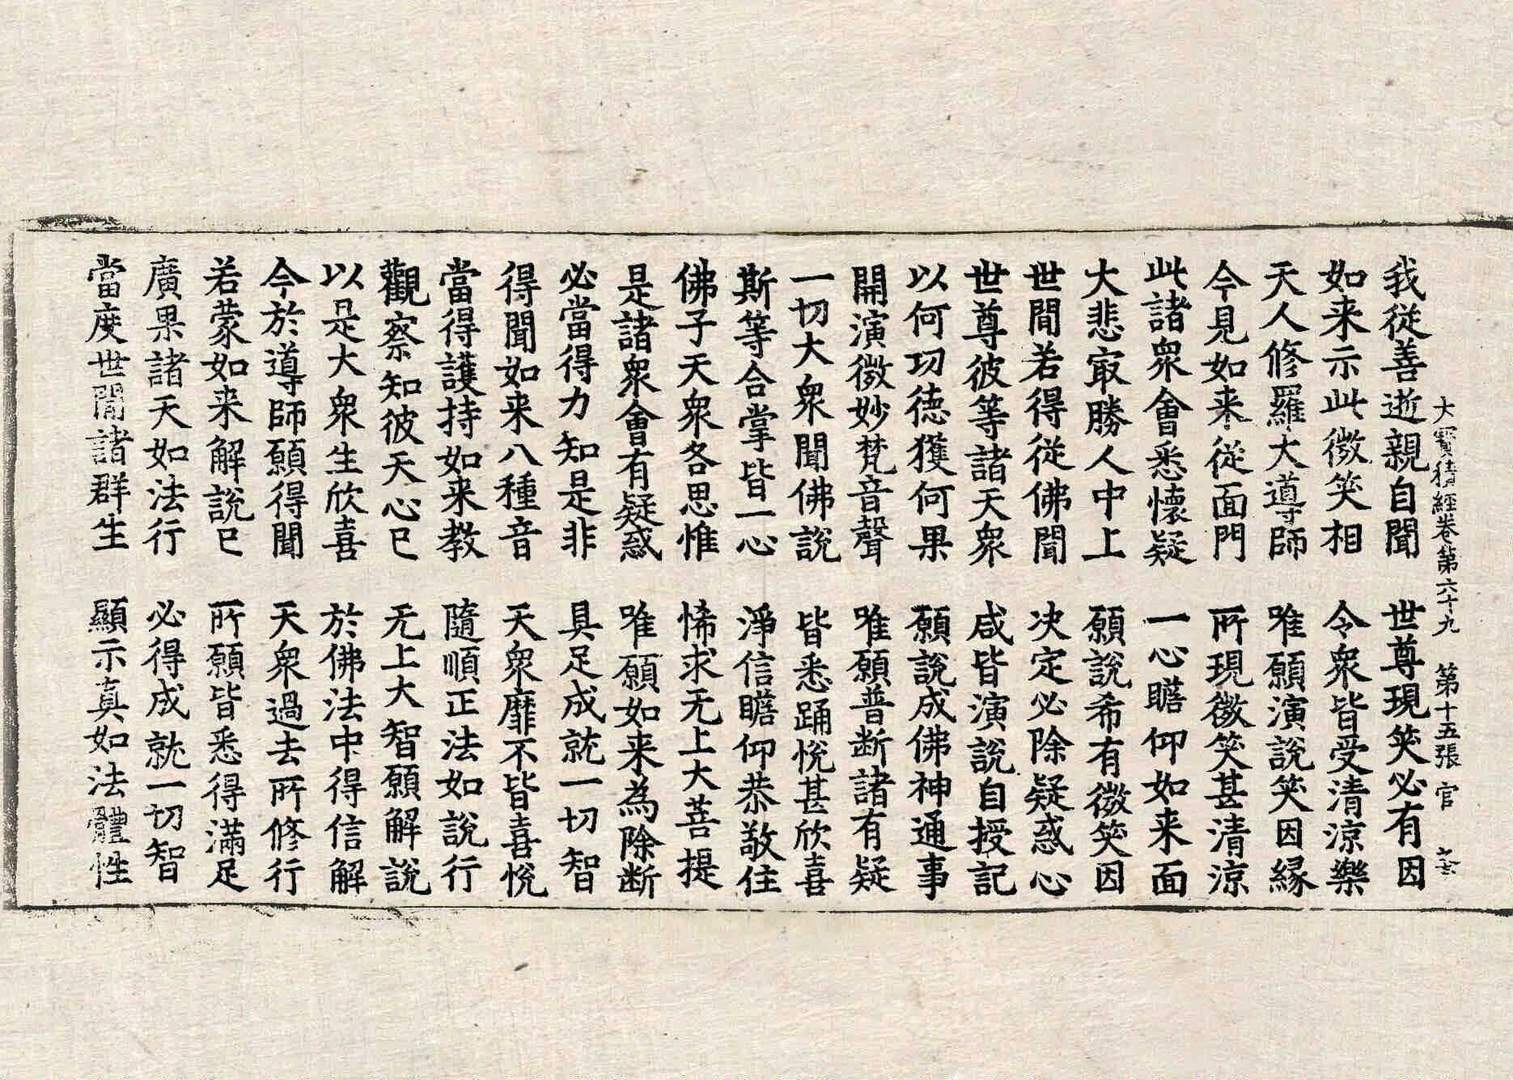 大寶積經卷第六十九　第十五張　官
我從善逝親自聞　世尊現笑必有因
如来示此微笑相　令衆皆受清涼樂
天人修羅大導師　唯願演說笑因緣
今見如来從面門　所現微笑甚清涼
此諸衆會悉懷疑　一心瞻仰如来面
大悲㝡勝人中上　願說希有微笑因
世間若得從佛聞　决定必除疑惑心
世尊彼等諸天衆　咸皆演說自授記
以何功德獲何果　願說成佛神通事
開演微妙梵音聲　唯願普断諸有疑
一切大衆聞佛說　皆悉踊悅甚欣喜
斯等合掌皆一心　淨信瞻仰恭敬住
佛子天衆各思惟　悕求无上大菩提
是諸衆會有疑惑　唯願如来為除断
必當得力知是非　具足成就一切智
得聞如来八種音　天衆靡不皆喜悅
當得護持如来教　隨順正法如說行
觀察知彼天心已　无上大智願解說
以是大衆生欣喜　於佛法中得信解
今於導師願得聞　天衆過去所修行
若蒙如来解說已　所願皆悉得滿足
廣果諸天如法行　必得成就一切智
當度世間諸群生　顯示真如法體性